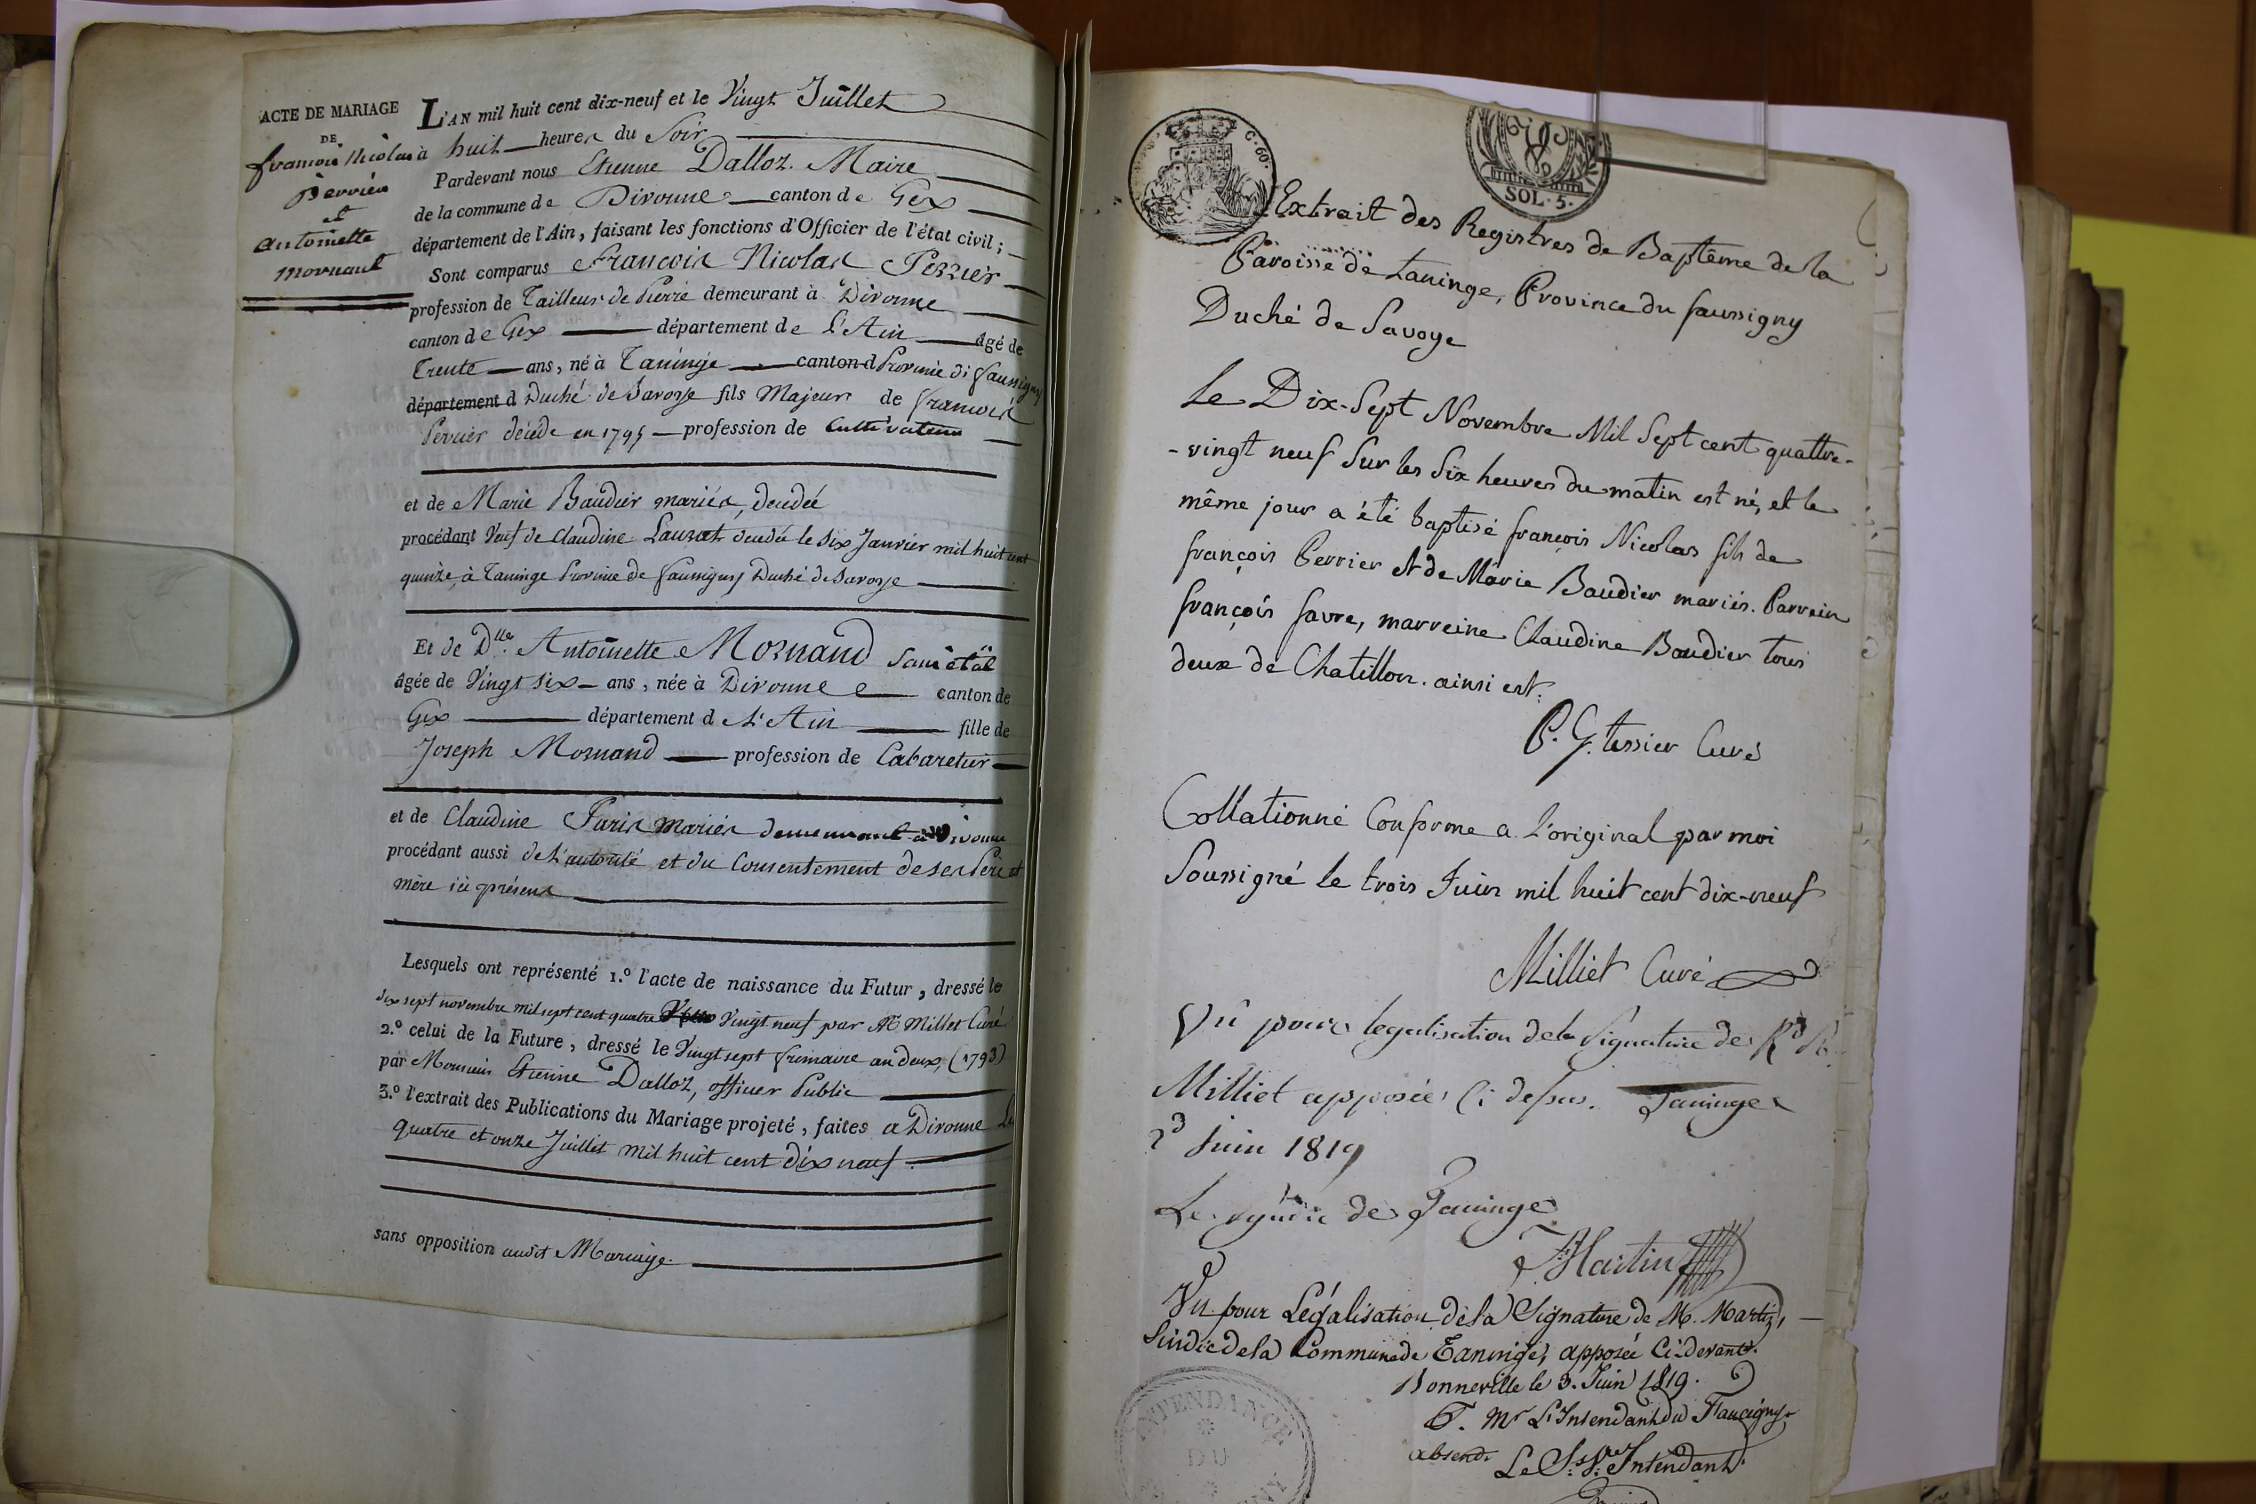 ACTE DE MARIAGE
DE
françois Nicolas
Perrier
et
antoinette
mornand
L'AN mil huit cent dix-neuf et le Vingt Juillet
à huit heures du Soir
Pardevant nous Etienne Dalloz Maire
de la commune de Divonne canton de Gex
département de l'Ain, faisant les fonctions d'Officier de l'état civil;
Sont comparus François Nicolas Perrier
profession de Tailleur de Pierre demeurant à Divonne
canton de Gex département de L'Ain âgé de
Trente ans, né à Taninge canton d Province di faussigny
département d Duché de Savoye fils Majeur de françois
Perrier décédé en 1795 profession de Cultivateur
et de Marie Baudier mariés, decedée
procédant Veuf de Claudine Lauzat decedée le Six Janvier mil huit cent
quinze, à Taninge Province de faussigny Duché de Savoye
Et de Dlle. Antoinette Mornand Sans état
âgée de Vingt six ans, née à Divonne canton de
Gex département d L'Ain fille de
Joseph Mornand profession de Cabaretier
et de Claudine Paris mariés demeurant à Divonne
procédant aussi de L'autorité et du Consentement de ses Père et
mère ici présens
Lesquels ont représenté 1.° l'acte de naissance du Futur, dressé le
dix sept novembre mil sept cent quatre Vingt neuf par Mr. Millet Curé
2.° celui de la Future, dressé le Vingt sept frimaire an deux, (1793)
par Monsieur Etienne Dalloz, officier Public
3.° l'extrait des Publications du Mariage projeté, faites a Divonne Le
quatre et onze Juillet mil huit cent dix neuf.
sans opposition audit Mariage.
C. 60.
SOL. 5.
Extrait des Registres de Baptême de la
Paroisse de Taninge, Province du faussigny
Duché de Savoye
Le Dix-Sept Novembre Mil Sept cent quattre-
-vingt neuf Sur les Six heures du matin est né, et le
même jour a été baptisé françois Nicolas fils de
françois Perrier et de Marie Baudier mariés. Parrein
françois favre, marreine Claudine Baudier tous
deux de Chatillon. ainsi est.
P. G. tessier Curé
Collationné Conforme a L'original par moi
Soussigné le trois Juin mil huit cent dix-neuf
Milliet Curé
Vû pour legalisation de la Signature de Rd Sr.
Milliet apposée Ci dessus. Taninge
3 Juin 1819
Le syndic de Taninge
Martin
Vu pour Légalisation de la Signature de M. Martin,
Sindic de la Commune de Taninge, apposée Ci-devant.
Bonneville le 3. Juin 1819.
P. Mr L'Intendant du Faucigny
absent. Le Ss. Intendant
INTENDANCE
DU